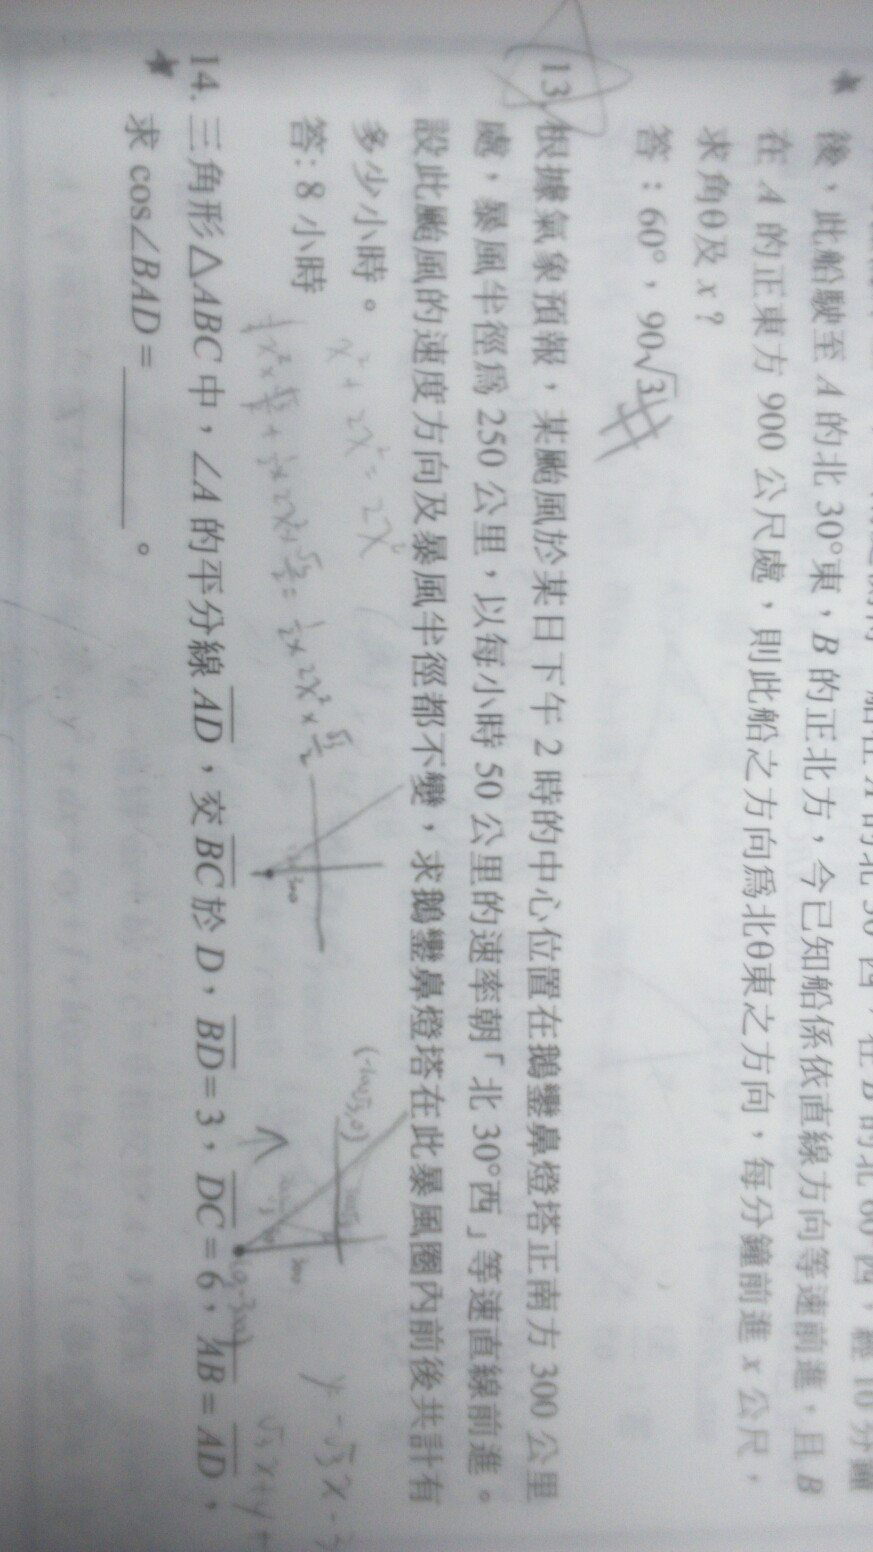 後，此船駛至 A 的北 30°東，B 的正北方，今已知船係依直線方向等速前進，且 B
在 A 的正東方 900 公尺處，則此船之方向為北θ東之方向，每分鐘前進 x 公尺，
求角θ及 x？
答：60°，90√3
13. 根據氣象預報，某颱風於某日下午 2 時的中心位置在鵝鑾鼻燈塔正南方 300 公里
處，暴風半徑為 250 公里，以每小時 50 公里的速率朝「北 30°西」等速直線前進。
設此颱風的速度方向及暴風半徑都不變，求鵝鑾鼻燈塔在此暴風圈內前後共計有
多少小時。
x² + 2x² = 2x²
答: 8 小時
(0,-300)
14. 三角形△ABC 中，∠A 的平分線 AD，交 BC 於 D，BD=3，DC=6，AB=AD，
求 cos∠BAD= ________ 。